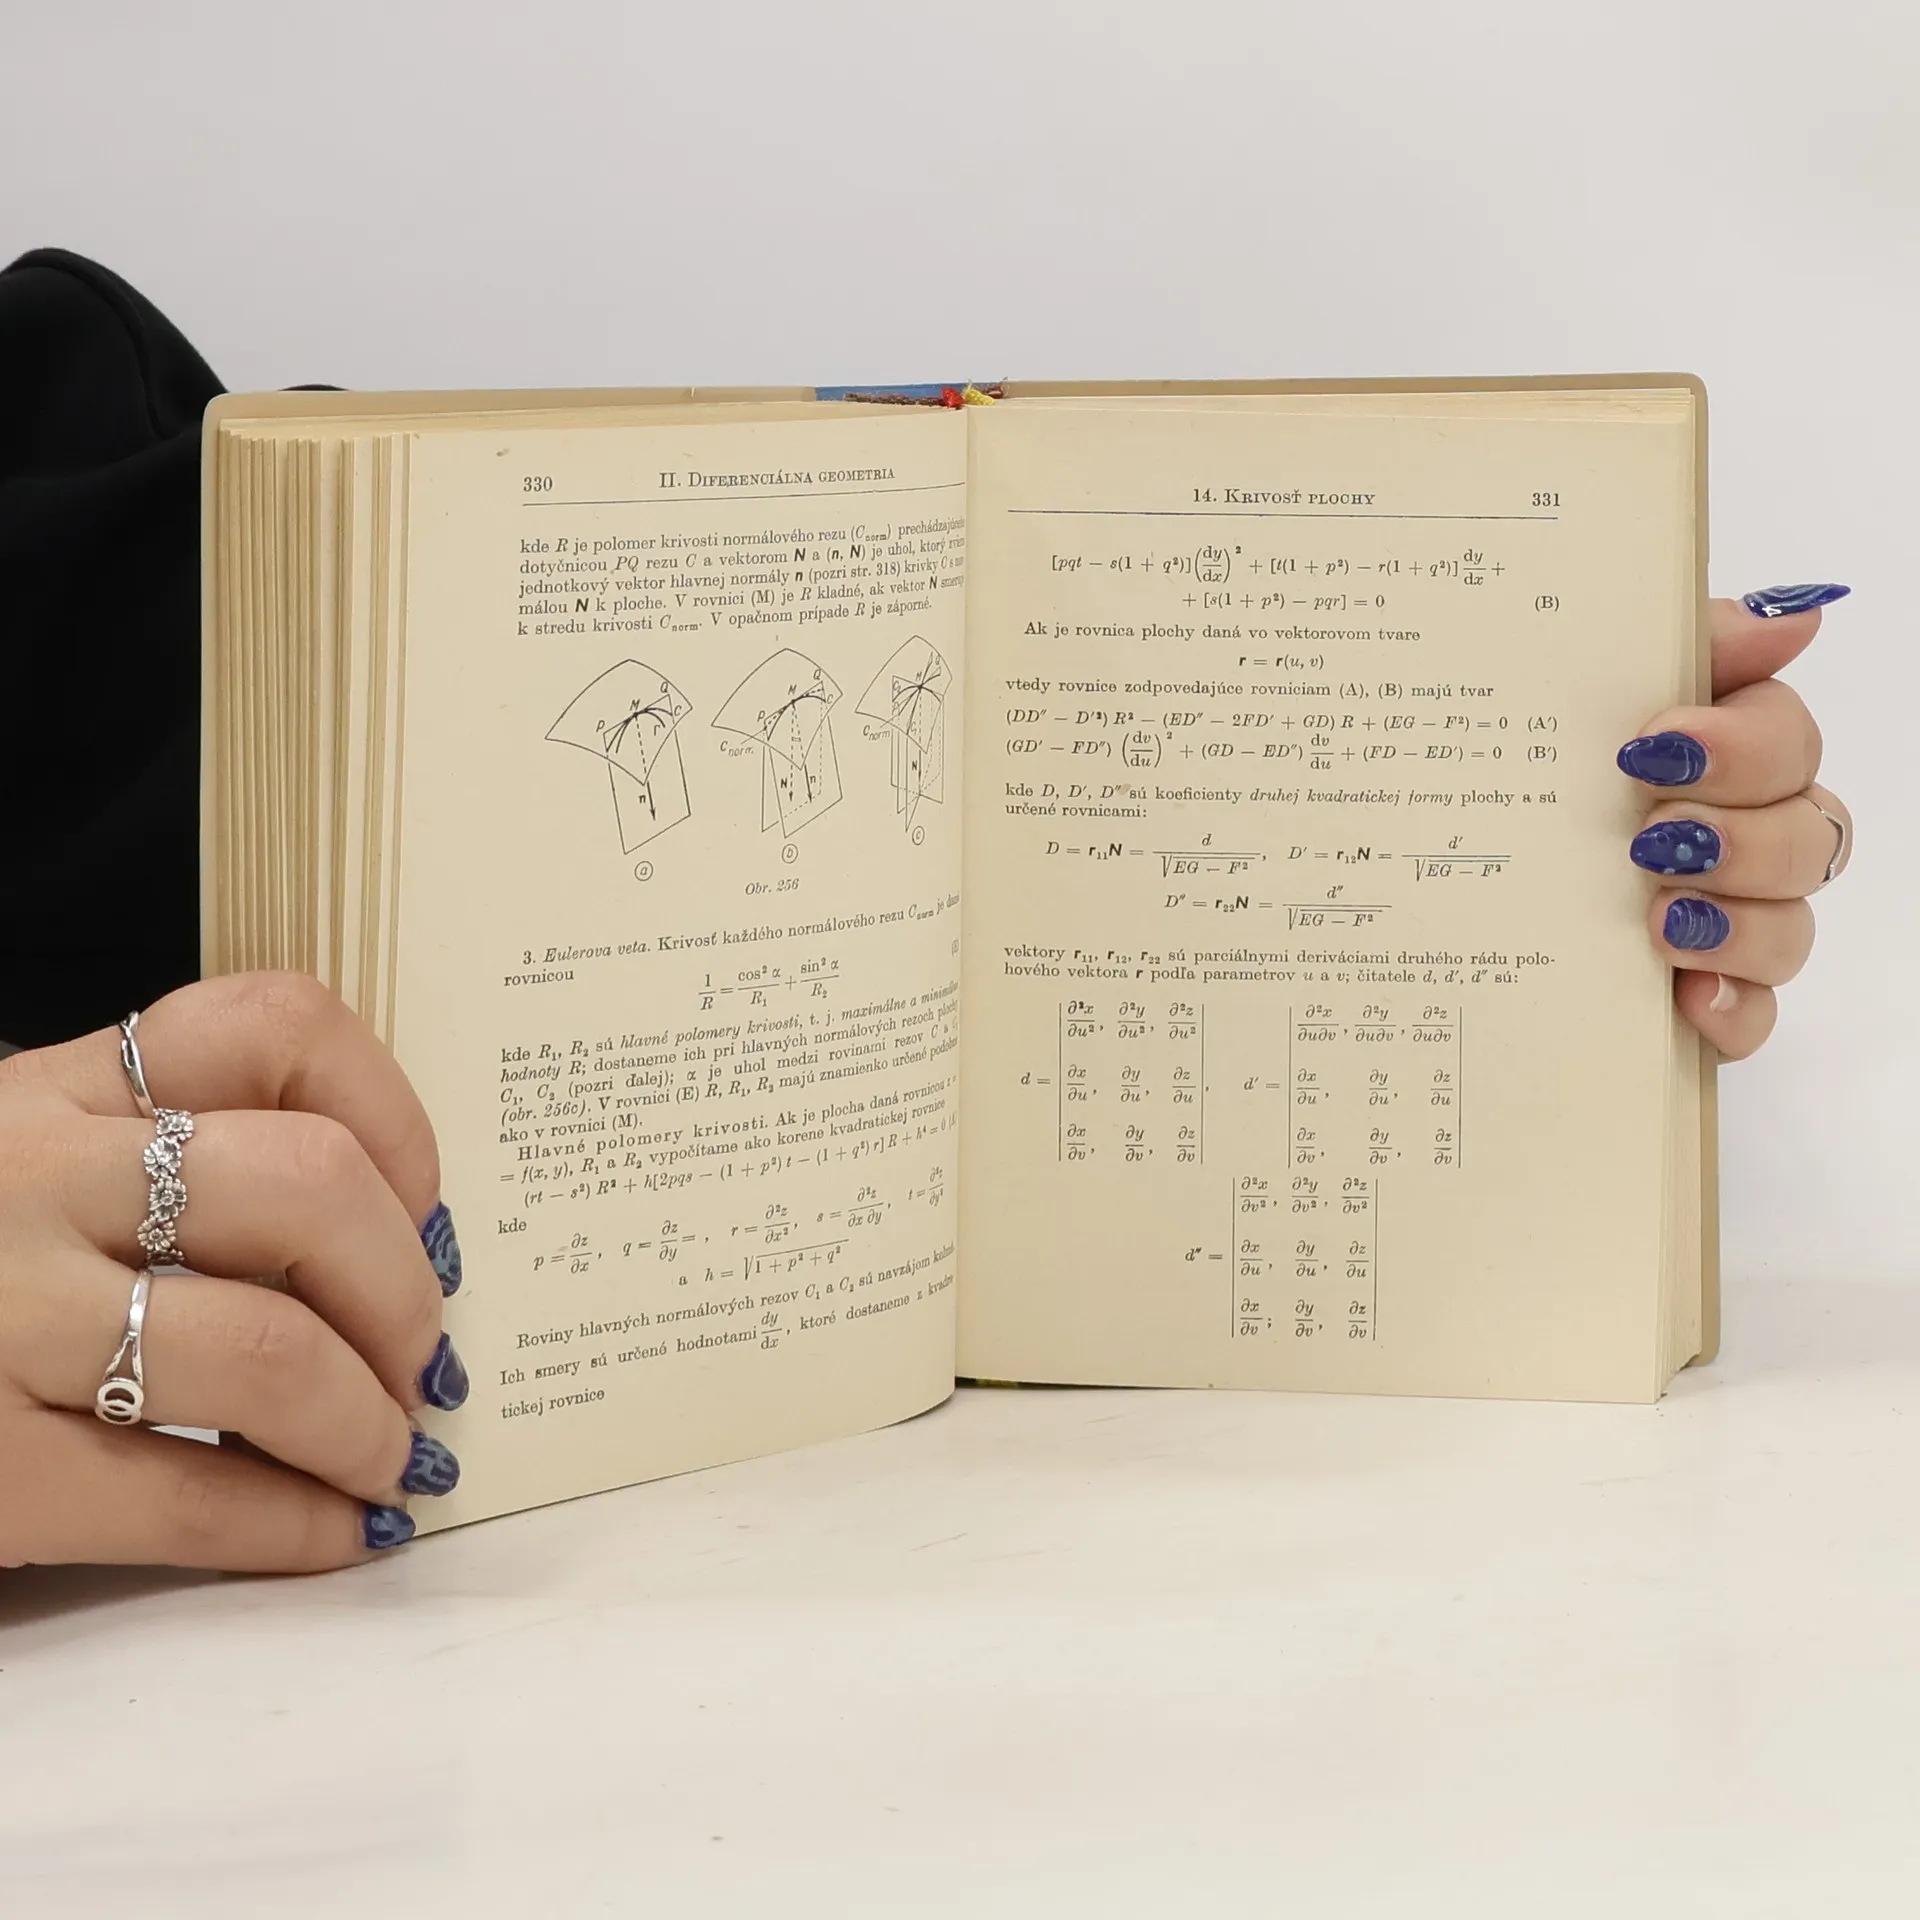 330 II. DIFERENCIÁLNA GEOMETRIA
kde R je polomer krivosti normálového rezu (Cnorm) prechádzajúceho
dotyčnicou PQ rezu C a vektorom N a (n, N) je uhol, ktorý zviera
jednotkový vektor hlavnej normály n (pozri str. 318) krivky C s nor-
málou N k ploche. V rovnici (M) je R kladné, ak vektor N smeruje
k stredu krivosti Cnorm. V opačnom prípade R je záporné.
P M Q C r n
P M Q C Cnorm. N n
M Q Cnorm N
a b c
Obr. 256
3. Eulerova veta. Krivosť každého normálového rezu Cnorm je daná
rovnicou
1/R = cos² α/R₁ + sin² α/R₂ (E)
kde R₁, R₂ sú hlavné polomery krivosti, t. j. maximálne a minimálne
hodnoty R; dostaneme ich pri hlavných normálových rezoch plochy
C₁, C₂ (pozri ďalej); α je uhol medzi rovinami rezov C a C₁
(obr. 256c). V rovnici (E) R, R₁, R₂ majú znamienko určené podobne
ako v rovnici (M).
Hlavné polomery krivosti. Ak je plocha daná rovnicou z =
= f(x, y), R₁ a R₂ vypočítame ako korene kvadratickej rovnice
(rt − s²) R² + h[2pqs − (1 + p²) t − (1 + q²) r] R + h⁴ = 0
kde
p = ∂z/∂x, q = ∂z/∂y = , r = ∂²z/∂x², s = ∂²z/∂x ∂y, t = ∂²z/∂y²
a h = √(1 + p² + q²)
Roviny hlavných normálových rezov C₁ a C₂ sú navzájom kolmé.
Ich smery sú určené hodnotami dy/dx, ktoré dostaneme z kvadra-
tickej rovnice
14. KRIVOSŤ PLOCHY 331
[pqt − s(1 + q²)](dy/dx)² + [t(1 + p²) − r(1 + q²)] dy/dx +
+ [s(1 + p²) − pqr] = 0 (B)
Ak je rovnica plochy daná vo vektorovom tvare
r = r(u, v)
vtedy rovnice zodpovedajúce rovniciam (A), (B) majú tvar
(DD″ − D′²) R² − (ED″ − 2FD′ + GD) R + (EG − F²) = 0 (A′)
(GD′ − FD″) (dv/du)² + (GD − ED″) dv/du + (FD − ED′) = 0 (B′)
kde D, D′, D″ sú koeficienty druhej kvadratickej formy plochy a sú
určené rovnicami:
D = r₁₁N = d/√(EG − F²), D′ = r₁₂N = d′/√(EG − F²)
D″ = r₂₂N = d″/√(EG − F²)
vektory r₁₁, r₁₂, r₂₂ sú parciálnymi deriváciami druhého rádu polo-
hového vektora r podľa parametrov u a v; čitatele d, d′, d″ sú:
∂²x/∂u², ∂²y/∂u², ∂²z/∂u² ∂²x/∂u∂v, ∂²y/∂u∂v, ∂²z/∂u∂v
d = ∂x/∂u, ∂y/∂u, ∂z/∂u, d′ = ∂x/∂u, ∂y/∂u, ∂z/∂u
∂x/∂v, ∂y/∂v, ∂z/∂v ∂x/∂v, ∂y/∂v, ∂z/∂v
∂²x/∂v², ∂²y/∂v², ∂²z/∂v²
d″ = ∂x/∂u, ∂y/∂u, ∂z/∂u
∂x/∂v; ∂y/∂v, ∂z/∂v